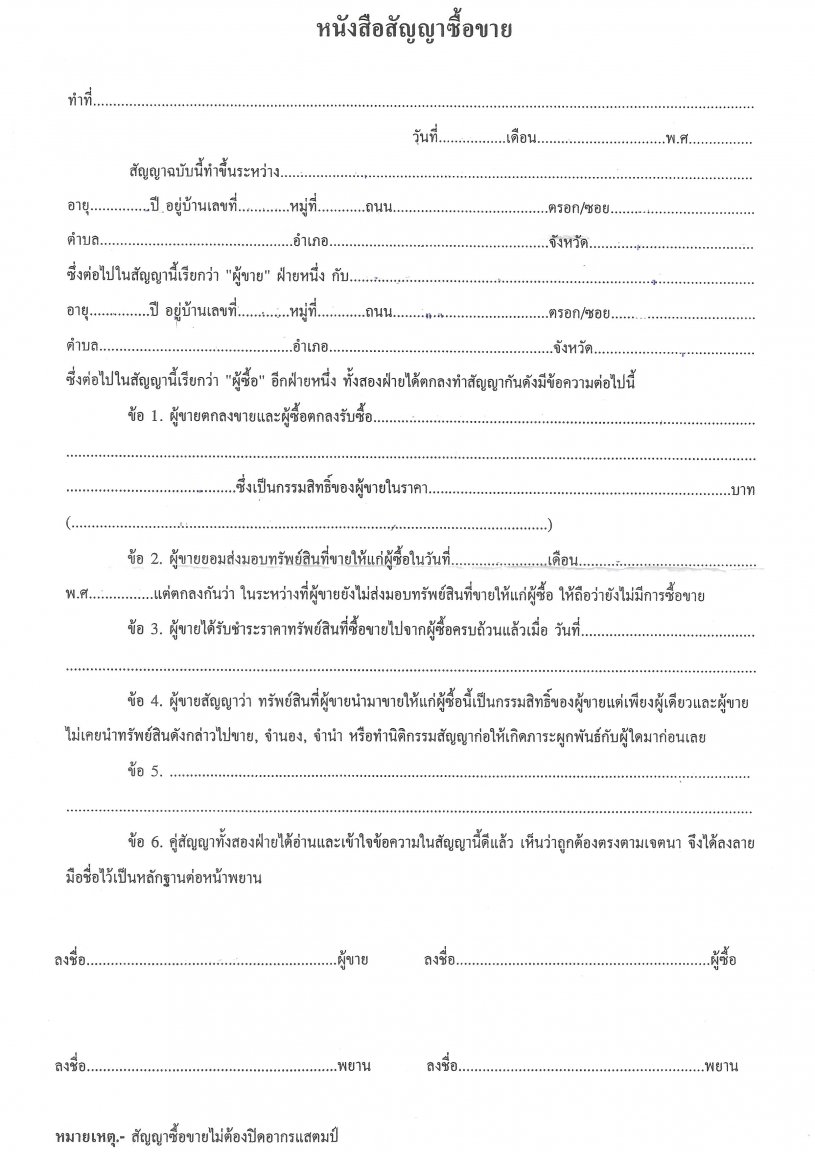 หนังสือสัญญาซื้อขาย
ทำที่....................................................................................................
วันที่................เดือน................................พ.ศ................
สัญญาฉบับนี้ทำขึ้นระหว่าง....................................................................................................
อายุ...............ปี อยู่บ้านเลขที่.............หมู่ที่............ถนน.......................................ตรอก/ซอย....................................
ตำบล................................................อำเภอ.......................................................จังหวัด.........................................
ซึ่งต่อไปในสัญญานี้เรียกว่า "ผู้ขาย" ฝ่ายหนึ่ง กับ....................................................................................................
อายุ...............ปี อยู่บ้านเลขที่.............หมู่ที่............ถนน.......................................ตรอก/ซอย....................................
ตำบล................................................อำเภอ.......................................................จังหวัด.........................................
ซึ่งต่อไปในสัญญานี้เรียกว่า "ผู้ซื้อ" อีกฝ่ายหนึ่ง ทั้งสองฝ่ายได้ตกลงทำสัญญากันดังมีข้อความต่อไปนี้
ข้อ 1. ผู้ขายตกลงขายและผู้ซื้อตกลงรับซื้อ....................................................................................................
....................................................................................................
..........................................ซึ่งเป็นกรรมสิทธิ์ของผู้ขายในราคา...........................................................................บาท
(....................................................................................................)
ข้อ 2. ผู้ขายยอมส่งมอบทรัพย์สินที่ขายให้แก่ผู้ซื้อในวันที่........................เดือน............................................
พ.ศ................แต่ตกลงกันว่า ในระหว่างที่ผู้ขายยังไม่ส่งมอบทรัพย์สินที่ขายให้แก่ผู้ซื้อ ให้ถือว่ายังไม่มีการซื้อขาย
ข้อ 3. ผู้ขายได้รับชำระราคาทรัพย์สินที่ซื้อขายไปจากผู้ซื้อครบถ้วนแล้วเมื่อ วันที่...........................................
....................................................................................................
ข้อ 4. ผู้ขายสัญญาว่า ทรัพย์สินที่ผู้ขายนำมาขายให้แก่ผู้ซื้อนี้เป็นกรรมสิทธิ์ของผู้ขายแต่เพียงผู้เดียวและผู้ขาย
ไม่เคยนำทรัพย์สินดังกล่าวไปขาย, จำนอง, จำนำ หรือทำนิติกรรมสัญญาก่อให้เกิดภาระผูกพันธ์กับผู้ใดมาก่อนเลย
ข้อ 5. ....................................................................................................
....................................................................................................
ข้อ 6. คู่สัญญาทั้งสองฝ่ายได้อ่านและเข้าใจข้อความในสัญญานี้ดีแล้ว เห็นว่าถูกต้องตรงตามเจตนา จึงได้ลงลาย
มือชื่อไว้เป็นหลักฐานต่อหน้าพยาน
ลงชื่อ..............................................................ผู้ขาย ลงชื่อ..............................................................ผู้ซื้อ
ลงชื่อ..............................................................พยาน ลงชื่อ..............................................................พยาน
หมายเหตุ.- สัญญาซื้อขายไม่ต้องปิดอากรแสตมป์